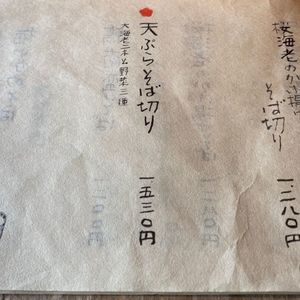 桜海老のかき揚げ
そば切り
一、二八〇円
天ぷらそば切り
大海老二本と野菜三種
一五三〇円